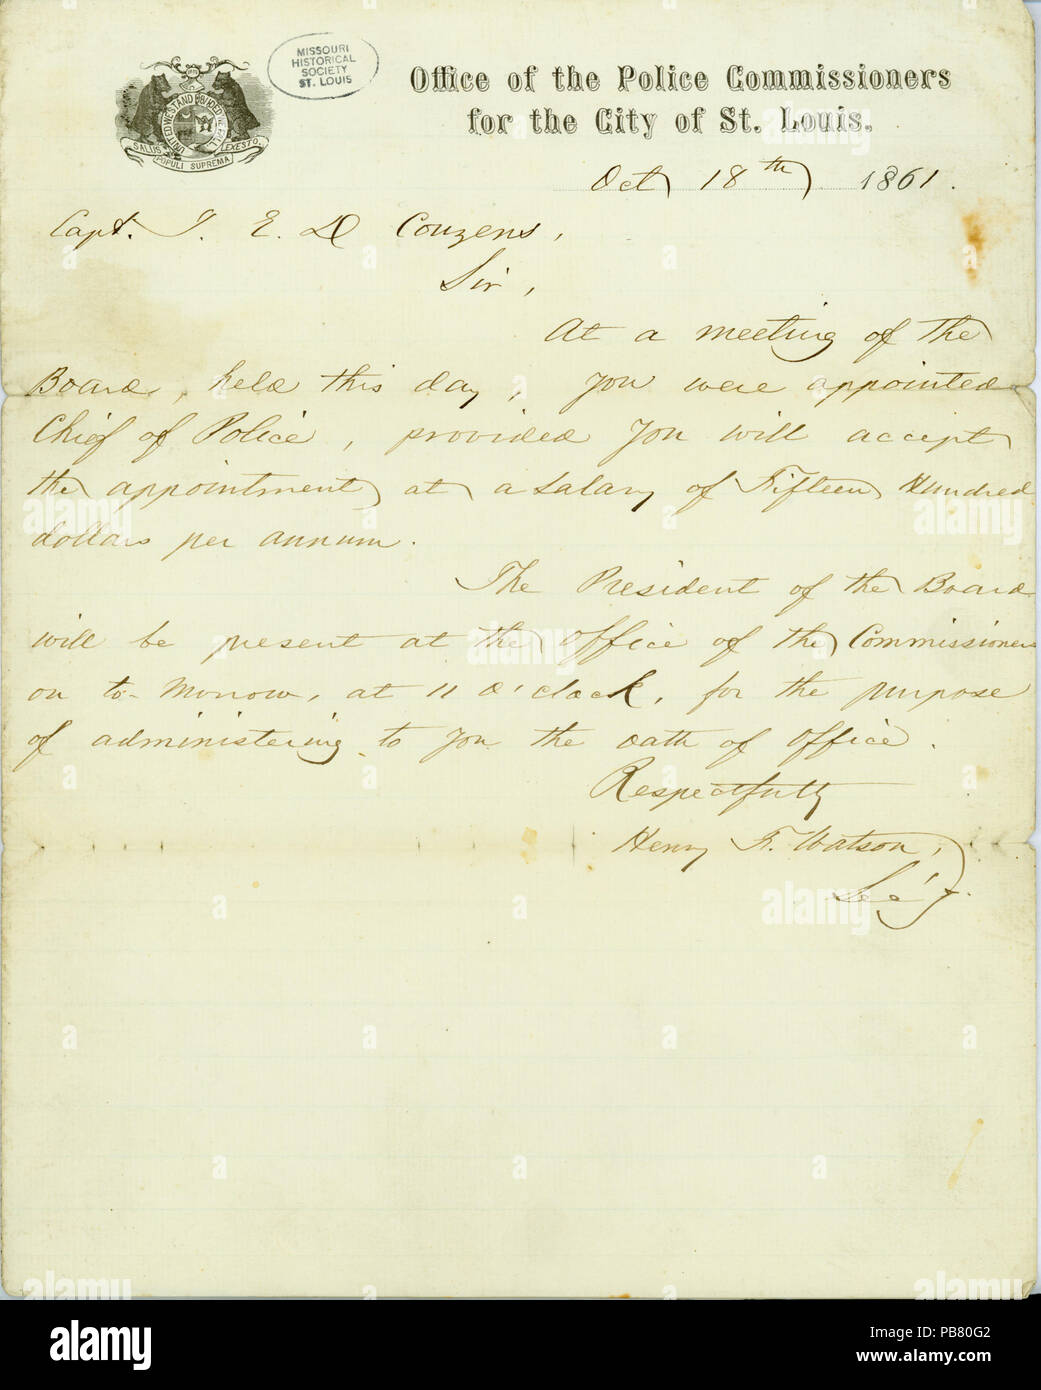 MISSOURI
HISTORICAL
SOCIETY
ST. LOUIS
UNITED WE STAND DIVIDED WE FALL
SALUS POPULI SUPREMA LEX ESTO
Office of the Police Commissioners
for the City of St. Louis.
Oct 18th 1861.
Capt. J. E. D Couzens,
Sir,
At a meeting of the
Board, held this day, you were appointed
Chief of Police, provided you will accept
the appointment at a salary of Fifteen Hundred
dollars per annum.
The President of the Board
will be present at the office of the Commissioners
on to-morrow, at 11 O'clock, for the purpose
of administering to you the oath of office.
Respectfully
Henry F. Watson,
Sec'y.
alamy
a
alamy
Image ID: PB80G2
www.alamy.com